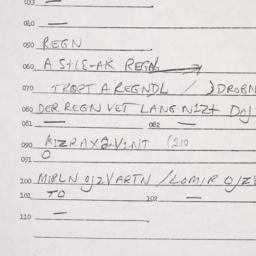 033 —
040 —
050 REGN
060 A STIL-AK REGN
070 TROPT A REGNDL / ) DROBN
080 DER REGN VET LANG NIZT DOJ
081 — 082 —
090 (210
091 0
100 MIRLN OJZVARTN / LOMIR OJZV
101 TO 102 —
110 —